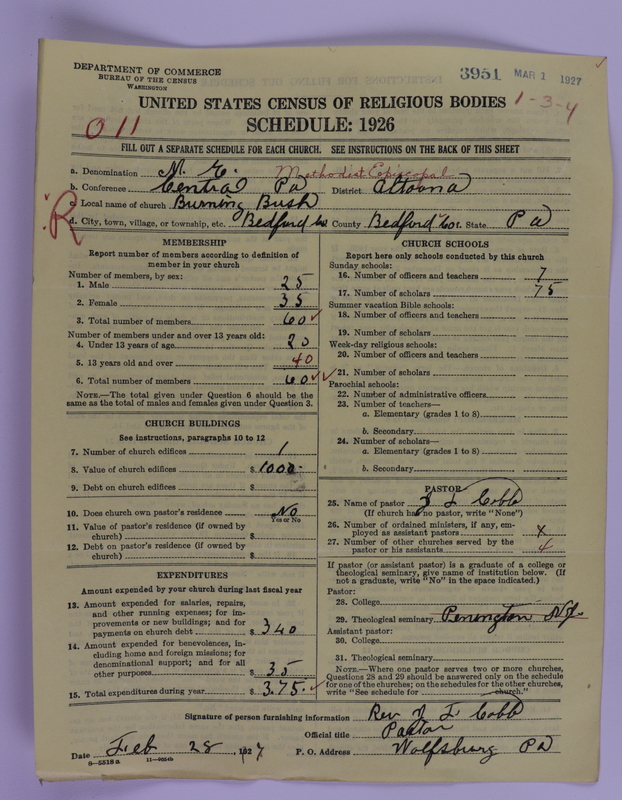 DEPARTMENT OF COMMERCE
BUREAU OF THE CENSUS
WASHINGTON
3951 MAR 1 1927
UNITED STATES CENSUS OF RELIGIOUS BODIES 1-3-4
011 SCHEDULE: 1926
FILL OUT A SEPARATE SCHEDULE FOR EACH CHURCH. SEE INSTRUCTIONS ON THE BACK OF THIS SHEET
a. Denomination M. E. Methodist Episcopal
b. Conference Central Pa District Altoona
c. Local name of church Burning Bush
R
d. City, town, village, or township, etc. Bedford Co County Bedford Co. State Pa
MEMBERSHIP
Report number of members according to definition of
member in your church
Number of members, by sex:
1. Male 25
2. Female 35
3. Total number of members 60 ✓
Number of members under and over 13 years old:
4. Under 13 years of age 20
5. 13 years old and over 40
6. Total number of members 60 ✓✓
NOTE.—The total given under Question 6 should be
the same as the total of males and females given under Question 3.
CHURCH BUILDINGS
See instructions, paragraphs 10 to 12
7. Number of church edifices 1
8. Value of church edifices $ 1000-
9. Debt on church edifices $
10. Does church own pastor's residence? No
Yes or No
11. Value of pastor's residence (if owned by
church) $
12. Debt on pastor's residence (if owned by
church) $
EXPENDITURES
Amount expended by your church during last fiscal year
13. Amount expended for salaries, repairs,
and other running expenses; for im-
provements or new buildings; and for
payments on church debt $ 340
14. Amount expended for benevolences, in-
cluding home and foreign missions; for
denominational support; and for all
other purposes $ 35
15. Total expenditures during year $ 375. ✓
CHURCH SCHOOLS
Report here only schools conducted by this church
Sunday schools:
16. Number of officers and teachers 7
17. Number of scholars 75
Summer vacation Bible schools:
18. Number of officers and teachers
19. Number of scholars
Week-day religious schools:
20. Number of officers and teachers
21. Number of scholars
Parochial schools:
22. Number of administrative officers
23. Number of teachers—
a. Elementary (grades 1 to 8)
b. Secondary
24. Number of scholars—
a. Elementary (grades 1 to 8)
b. Secondary
PASTOR
25. Name of pastor J L Cobb
(If church has no pastor, write "None")
26. Number of ordained ministers, if any, em-
ployed as assistant pastors x
27. Number of other churches served by the
pastor or his assistants 4
If pastor (or assistant pastor) is a graduate of a college or
theological seminary, give name of institution below. (If
not a graduate, write "No" in the space indicated.)
Pastor:
28. College
29. Theological seminary Penington N.J.
Assistant pastor:
30. College
31. Theological seminary
NOTE.—Where one pastor serves two or more churches,
Questions 28 and 29 should be answered only on the schedule
for one of the churches; on the schedules for the other churches,
write "See schedule for church."
Signature of person furnishing information Rev J L Cobb
Official title Pastor
Date Feb 28, 1927 P. O. Address Wolfsburg Pa
8—5518 a 11—9054b